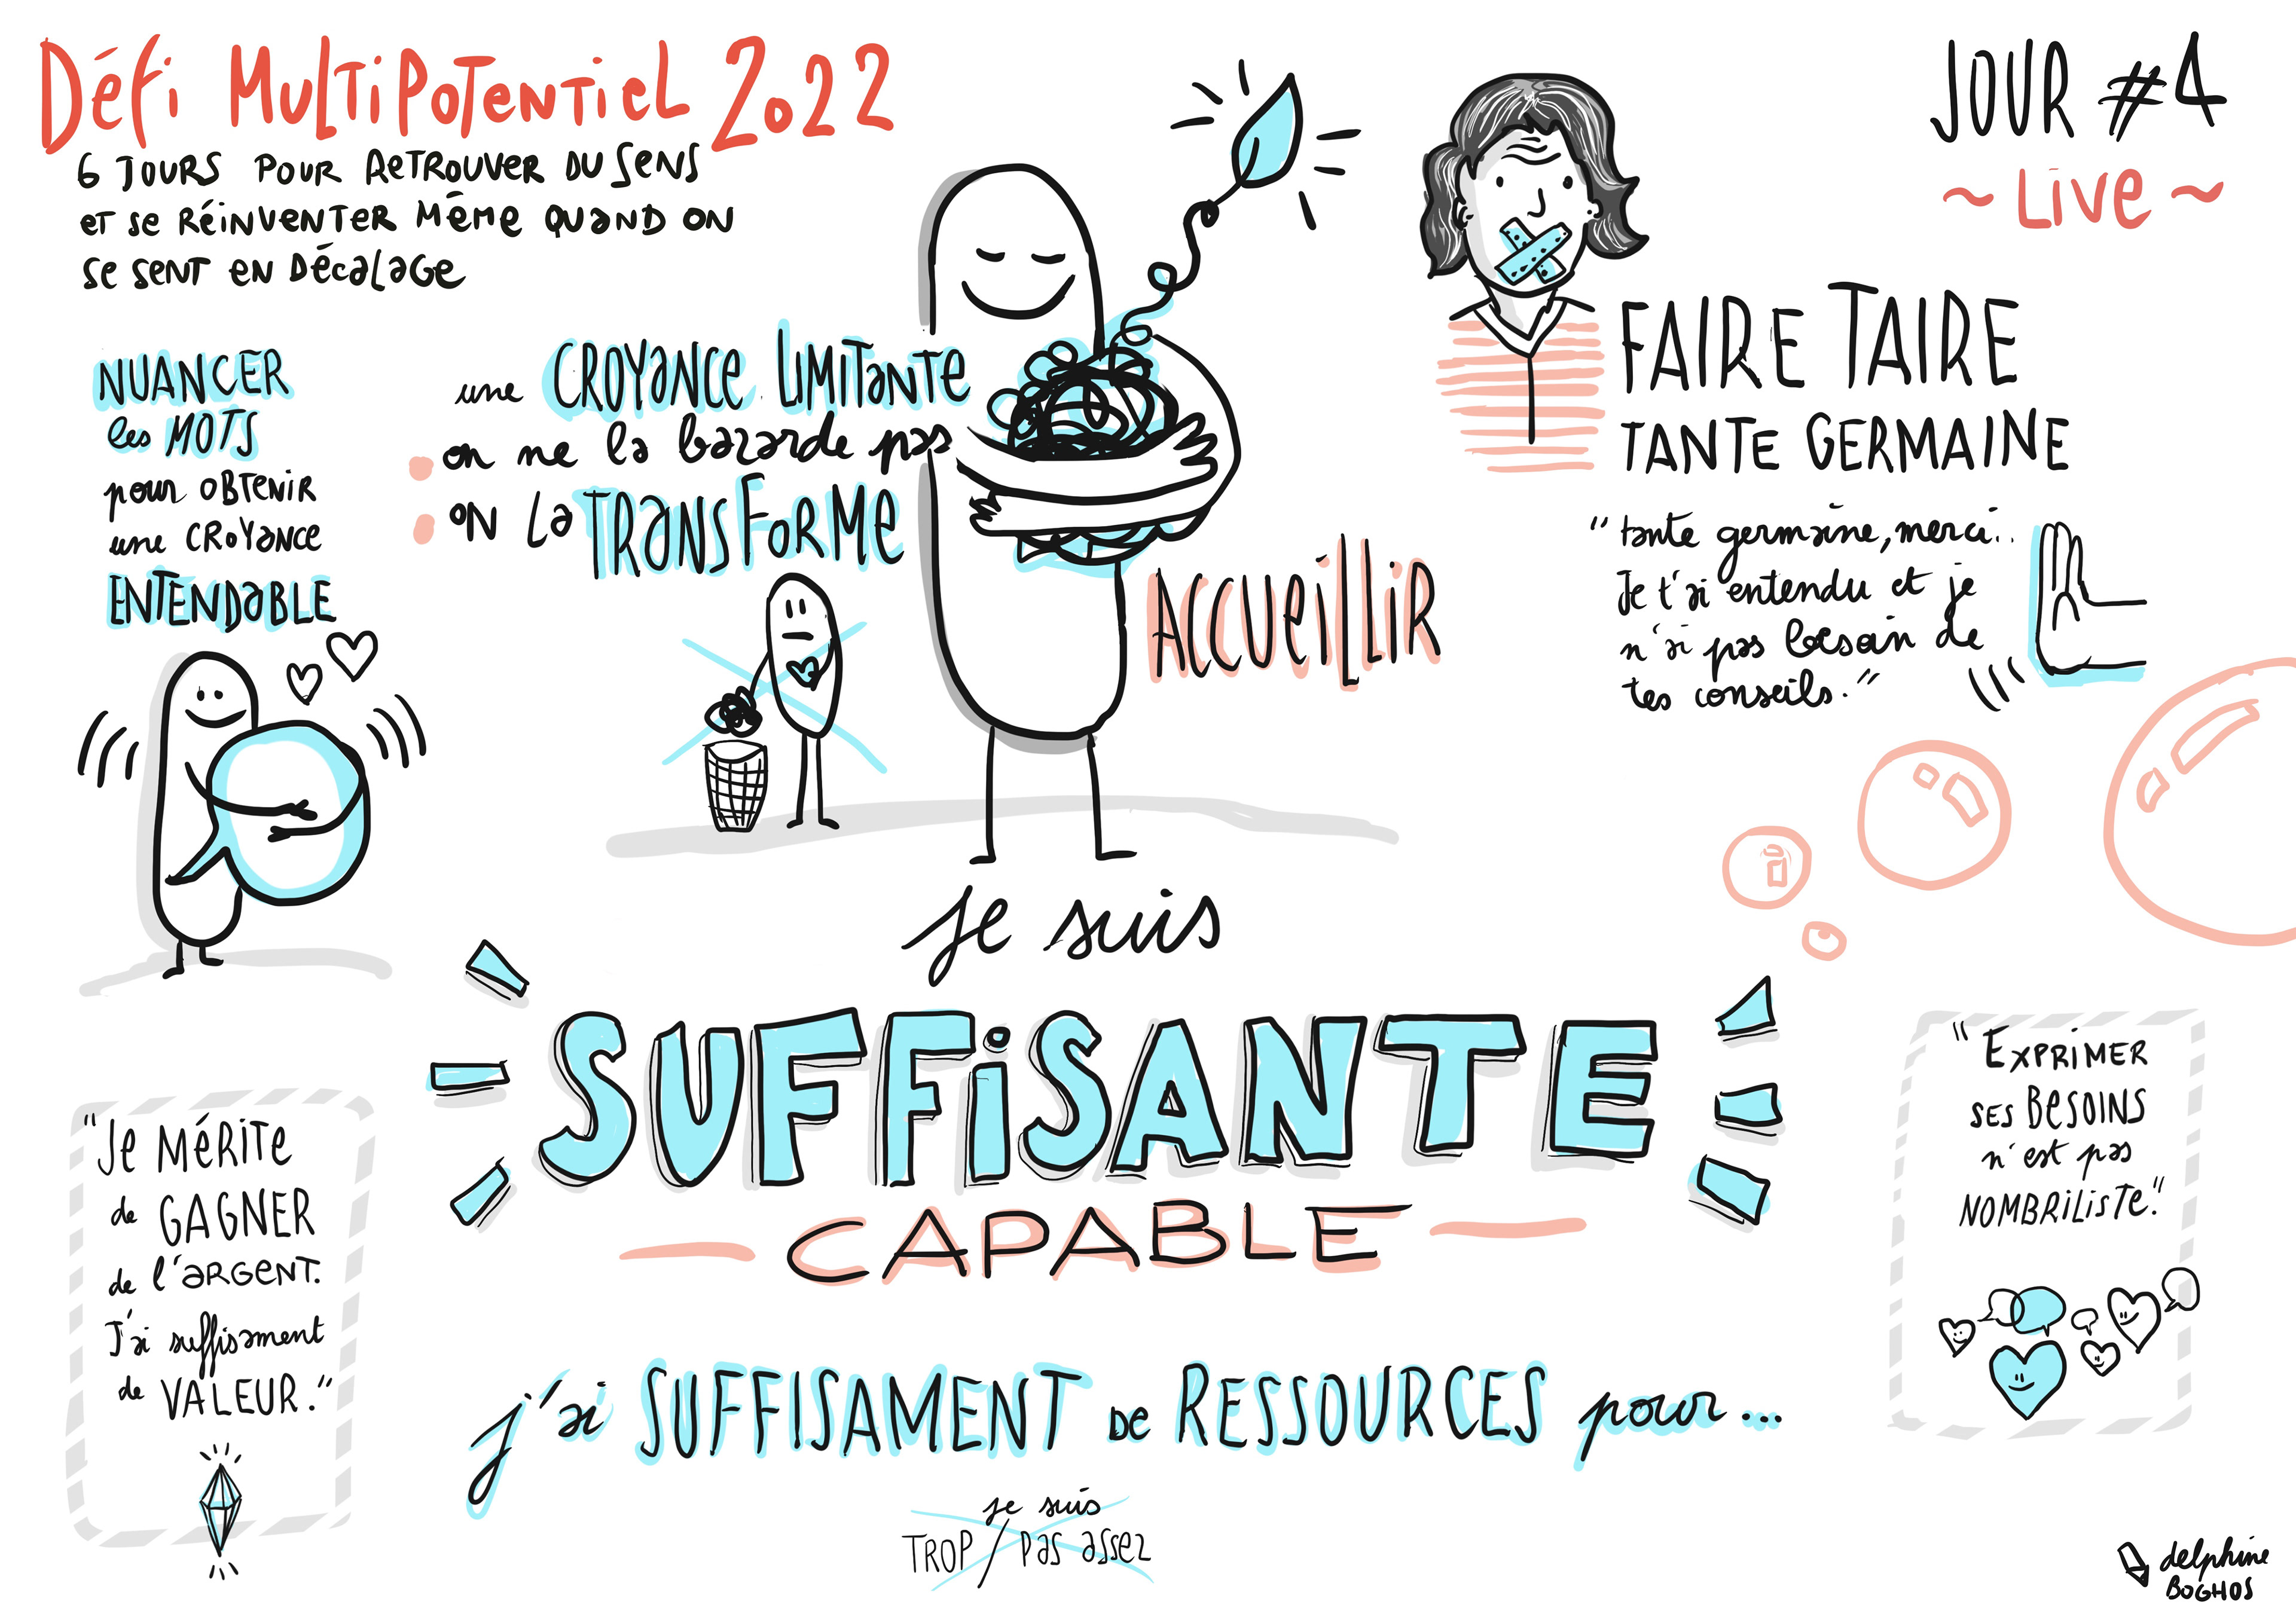 Défi Multipotentiel 2022
6 jours pour retrouver du sens
et se réinventer même quand on
se sent en décalage
JOUR #4
~ Live ~
NUANCER
les MOTS
pour obtenir
une croyance
ENTENDABLE
une CROYANCE LIMITANTE
on ne la bazarde pas
on la TRANSFORME
ACCUEILLIR
FAIRE TAIRE
TANTE GERMAINE
"tante germaine, merci..
Je t'ai entendu et je
n'ai pas besoin de
tes conseils."
je suis
SUFFISANTE
CAPABLE
j'ai SUFFISAMENT de RESSOURCES pour...
je suis
TROP / pas assez
"Je mérite
de GAGNER
de l'argent.
J'ai suffisament
de VALEUR."
"Exprimer
ses BESOINS
n'est pas
NOMBRILISTE."
delphine
BOGHOS